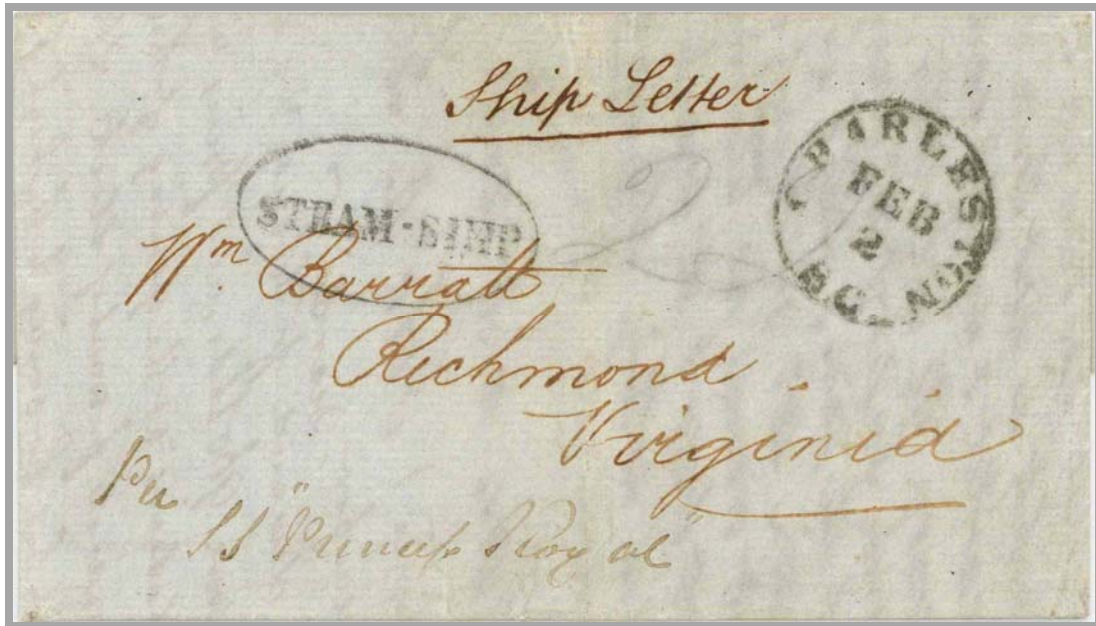 Ship Letter
STEAM-SHIP
CHARLESTON
FEB
2
S.C.
Wm. Barratt
Richmond
Virginia
Per
SS "Princess Royal"